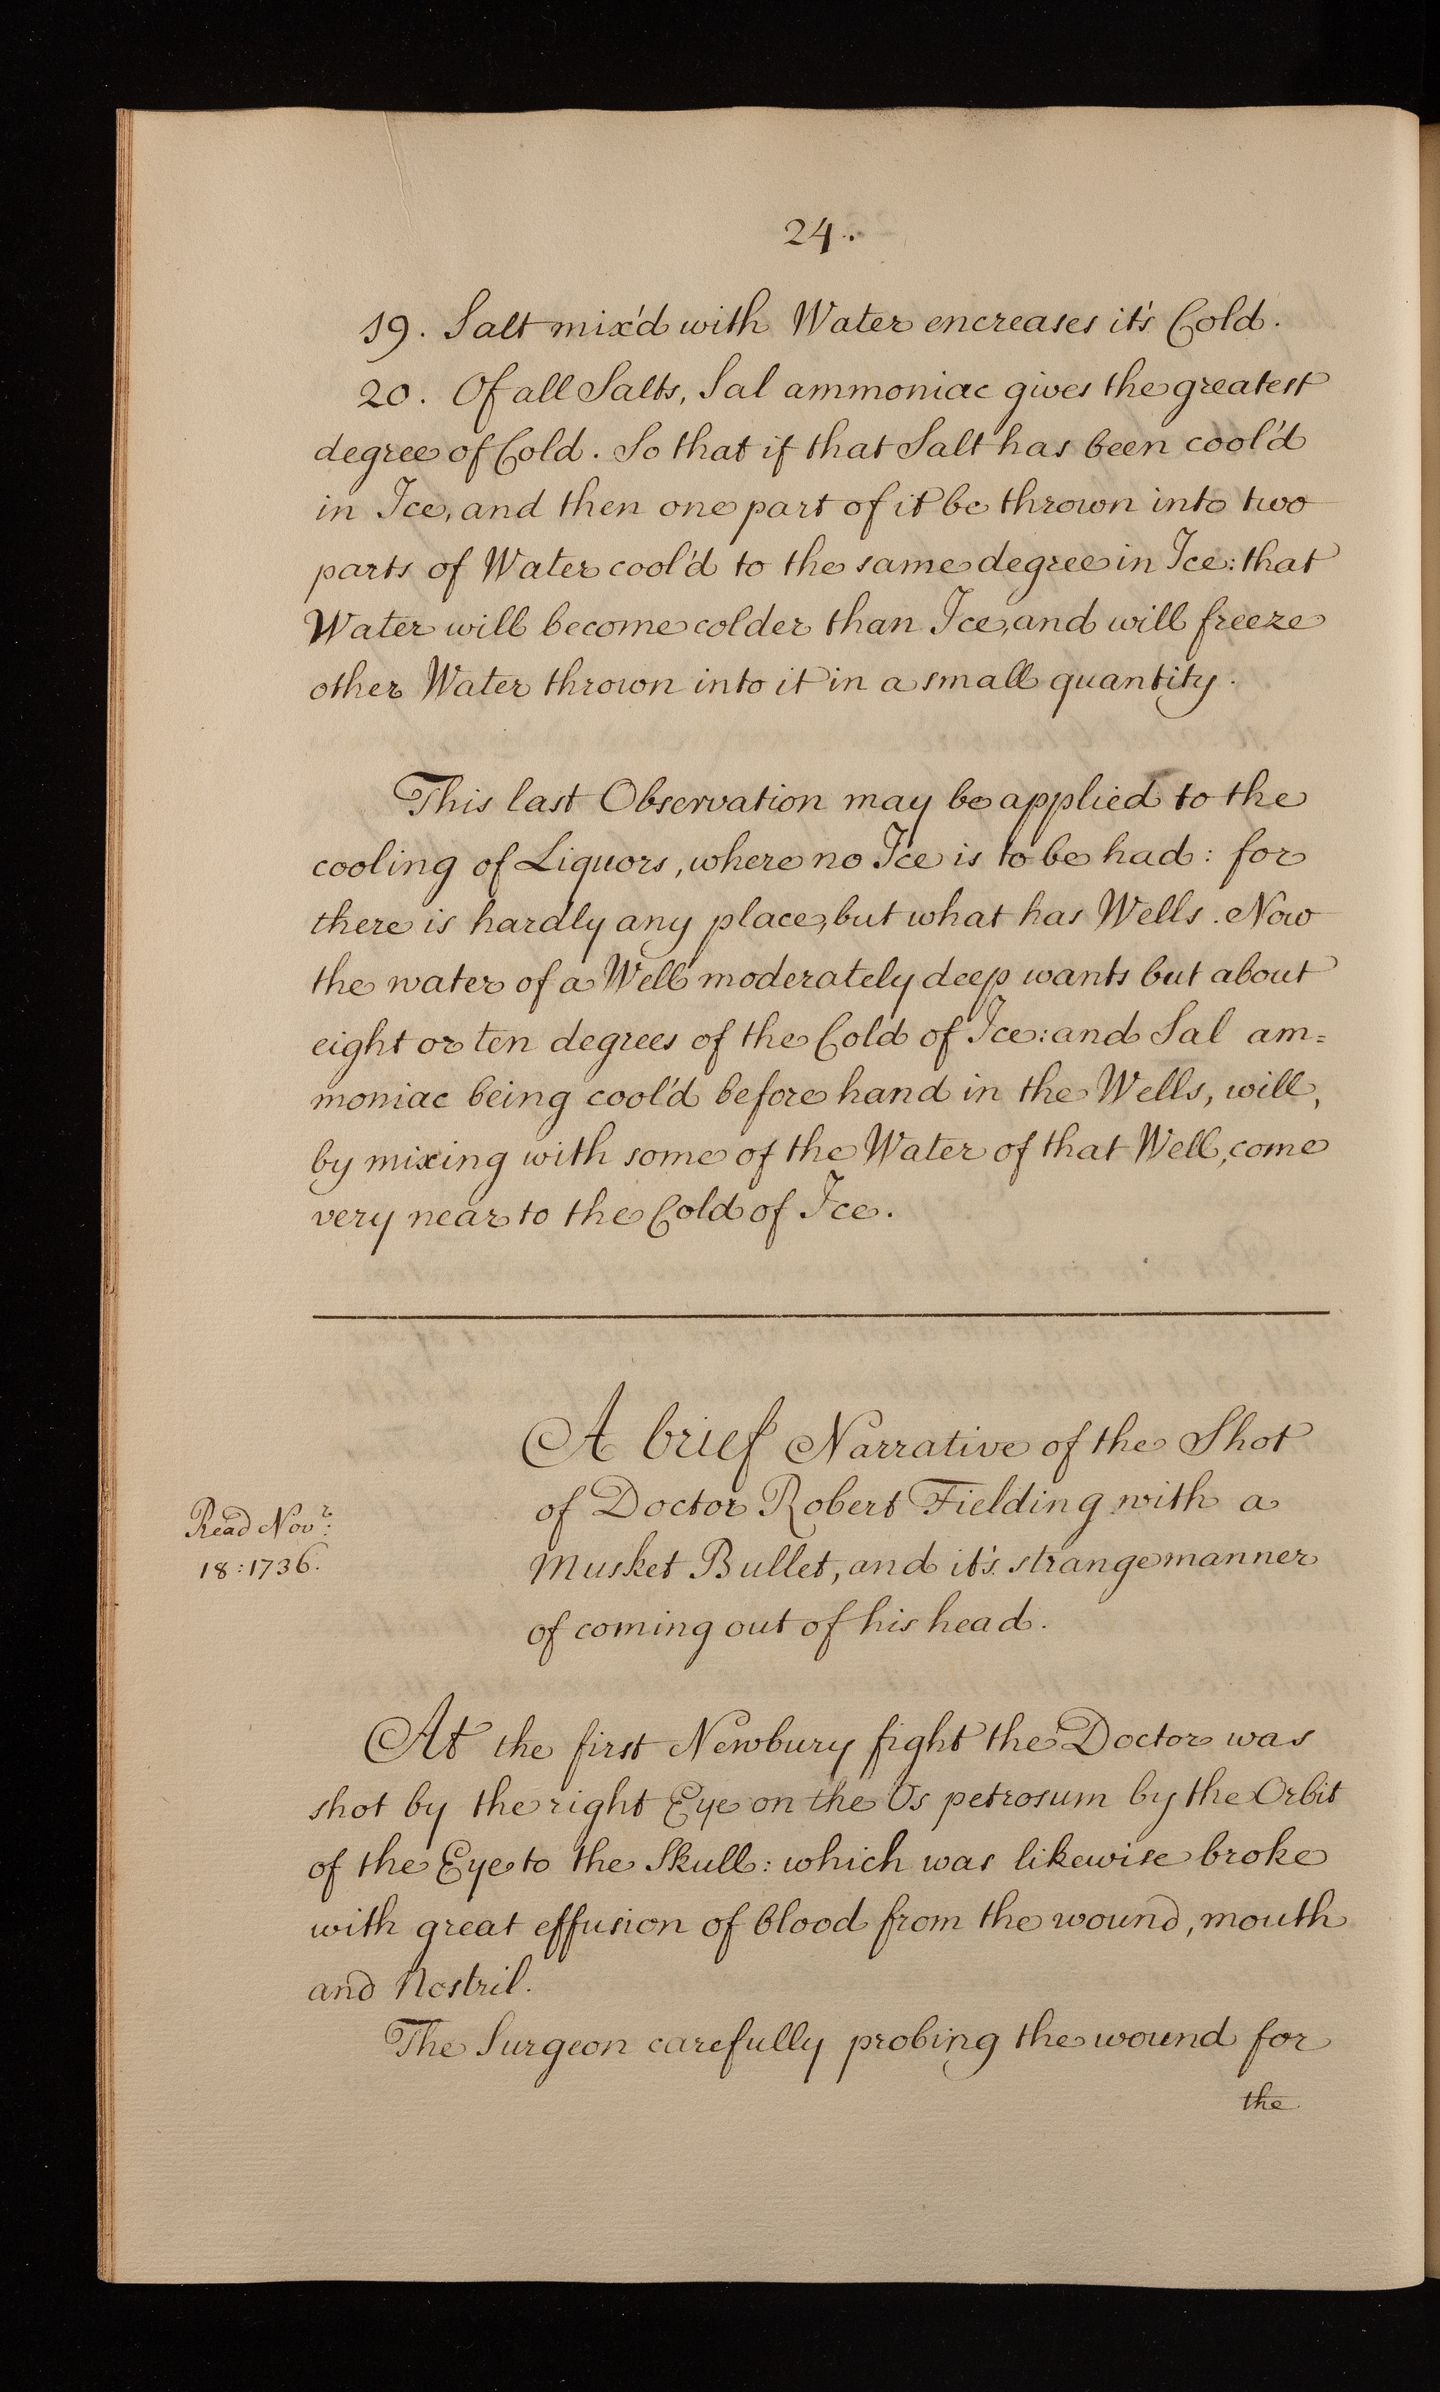 24.
19. Salt mix'd with Water encreases it's Cold.
20. Of all Salts, Sal ammoniac gives the greatest
degree of Cold. So that if that Salt has been cool'd
in Ice, and then one part of it be thrown into two
parts of Water cool'd to the same degree in Ice: that
Water will become colder than Ice, and will freeze
other Water thrown into it in a small quantity.
This last Observation may be applied to the
cooling of Liquors, where no Ice is to be had: for
there is hardly any place, but what has Wells. Now
the water of a Well moderately deep wants but about
eight or ten degrees of the Cold of Ice: and Sal am=
moniac being cool'd before hand in the Wells, will,
by mixing with some of the Water of that Well, come
very near to the Cold of Ice.
A brief Narrative of the Shot
of Doctor Robert Fielding with a
Read Nov.r
Musket Bullet, and it's strange manner
18: 1736.
of coming out of his head.
At the first Newbury fight the Doctor was
shot by the right Eye on the Os petrosum by the Orbit
of the Eye to the Skull: which was likewise broke
with great effusion of blood from the wound, mouth
and Nostril.
The Surgeon carefully probing the wound for
the